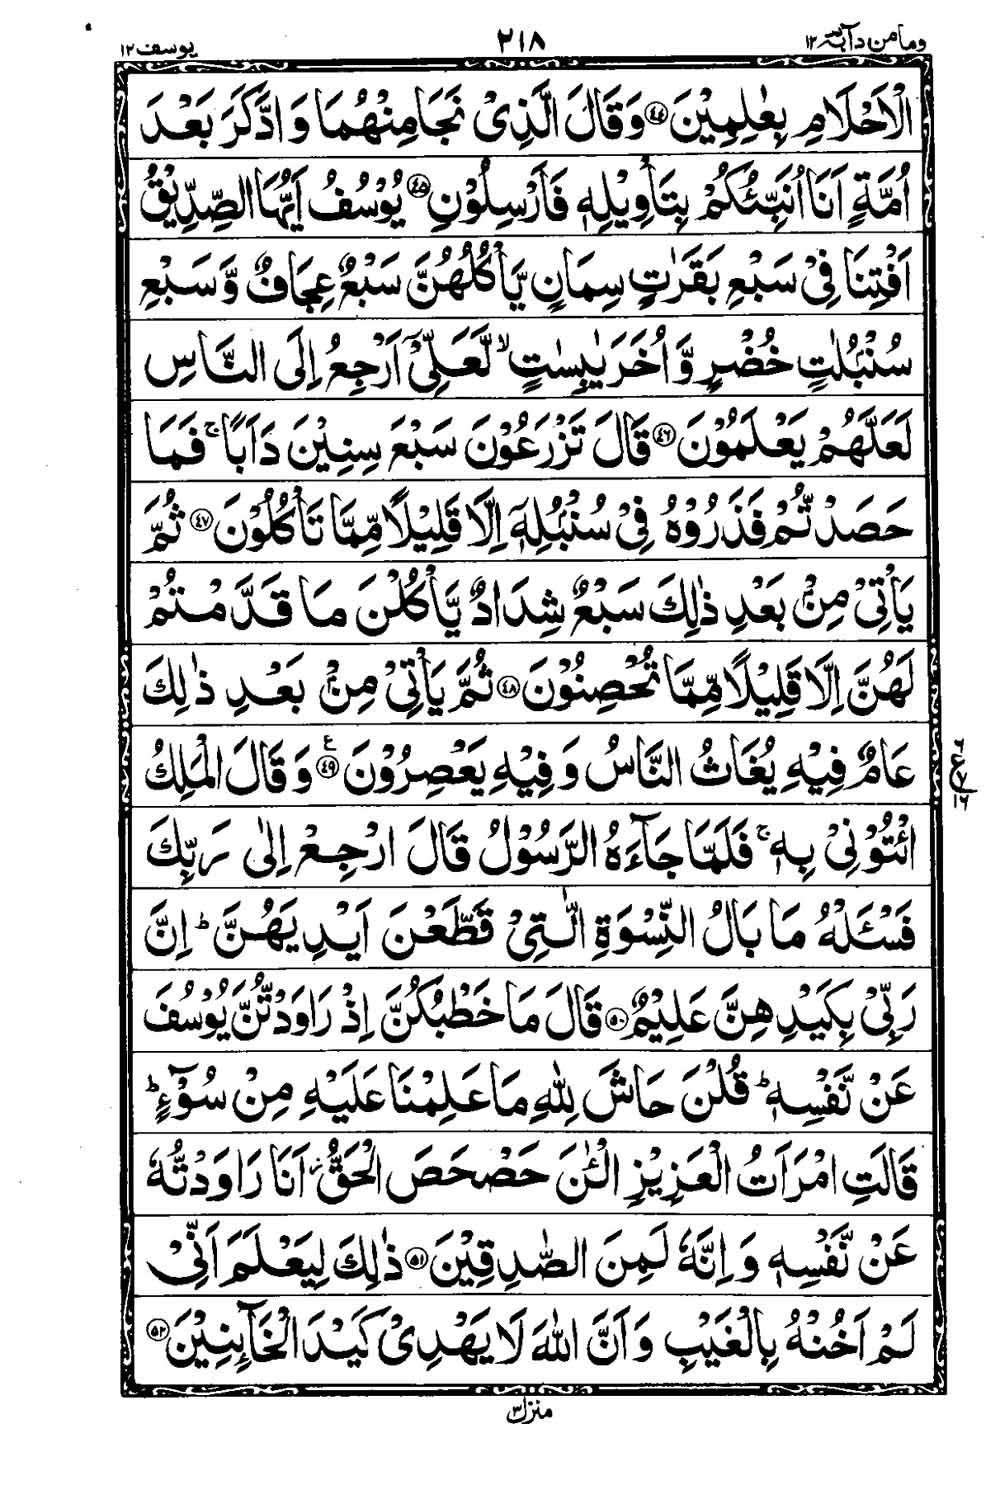 وما من دآبة ١٢ ٢١٨ يوسف ١٢
الْاَحْلَامِ بِعٰلِمِيْنَ ﴿٤٤﴾ وَقَالَ الَّذِيْ نَجَا مِنْهُمَا وَادَّكَرَ بَعْدَ
اُمَّةٍ اَنَا اُنَبِّئُكُمْ بِتَاْوِيْلِهٖ فَاَرْسِلُوْنِ ﴿٤٥﴾ يُوْسُفُ اَيُّهَا الصِّدِّيْقُ
اَفْتِنَا فِيْ سَبْعِ بَقَرٰتٍ سِمَانٍ يَّاْكُلُهُنَّ سَبْعٌ عِجَافٌ وَّسَبْعِ
سُنْۢبُلٰتٍ خُضْرٍ وَّاُخَرَ يٰبِسٰتٍ ۙ لَّعَلِّيْۤ اَرْجِعُ اِلَى النَّاسِ
لَعَلَّهُمْ يَعْلَمُوْنَ ﴿٤٦﴾ قَالَ تَزْرَعُوْنَ سَبْعَ سِنِيْنَ دَاَبًا ۚ فَمَا
حَصَدْتُّمْ فَذَرُوْهُ فِيْ سُنْۢبُلِهٖۤ اِلَّا قَلِيْلًا مِّمَّا تَاْكُلُوْنَ ﴿٤٧﴾ ثُمَّ
يَاْتِيْ مِنْۢ بَعْدِ ذٰلِكَ سَبْعٌ شِدَادٌ يَّاْكُلْنَ مَا قَدَّمْتُمْ
لَهُنَّ اِلَّا قَلِيْلًا مِّمَّا تُحْصِنُوْنَ ﴿٤٨﴾ ثُمَّ يَاْتِيْ مِنْۢ بَعْدِ ذٰلِكَ
عَامٌ فِيْهِ يُغَاثُ النَّاسُ وَفِيْهِ يَعْصِرُوْنَ ﴿٤٩﴾ ع وَقَالَ الْمَلِكُ
ائْتُوْنِيْ بِهٖ ۚ فَلَمَّا جَآءَهُ الرَّسُوْلُ قَالَ ارْجِعْ اِلٰى رَبِّكَ
فَسْـَٔلْهُ مَا بَالُ النِّسْوَةِ الّٰتِيْ قَطَّعْنَ اَيْدِيَهُنَّ ؕ اِنَّ
رَبِّيْ بِكَيْدِهِنَّ عَلِيْمٌ ﴿٥٠﴾ قَالَ مَا خَطْبُكُنَّ اِذْ رَاوَدْتُّنَّ يُوْسُفَ
عَنْ نَّفْسِهٖ ؕ قُلْنَ حَاشَ لِلّٰهِ مَا عَلِمْنَا عَلَيْهِ مِنْ سُوْٓءٍ ؕ
قَالَتِ امْرَاَتُ الْعَزِيْزِ الْـٰٔنَ حَصْحَصَ الْحَقُّ ؗ اَنَا رَاوَدْتُّهٗ
عَنْ نَّفْسِهٖ وَاِنَّهٗ لَمِنَ الصّٰدِقِيْنَ ﴿٥١﴾ ذٰلِكَ لِيَعْلَمَ اَنِّيْ
لَمْ اَخُنْهُ بِالْغَيْبِ وَاَنَّ اللّٰهَ لَا يَهْدِيْ كَيْدَ الْخَآئِنِيْنَ ﴿٥٢﴾
منزل ٣